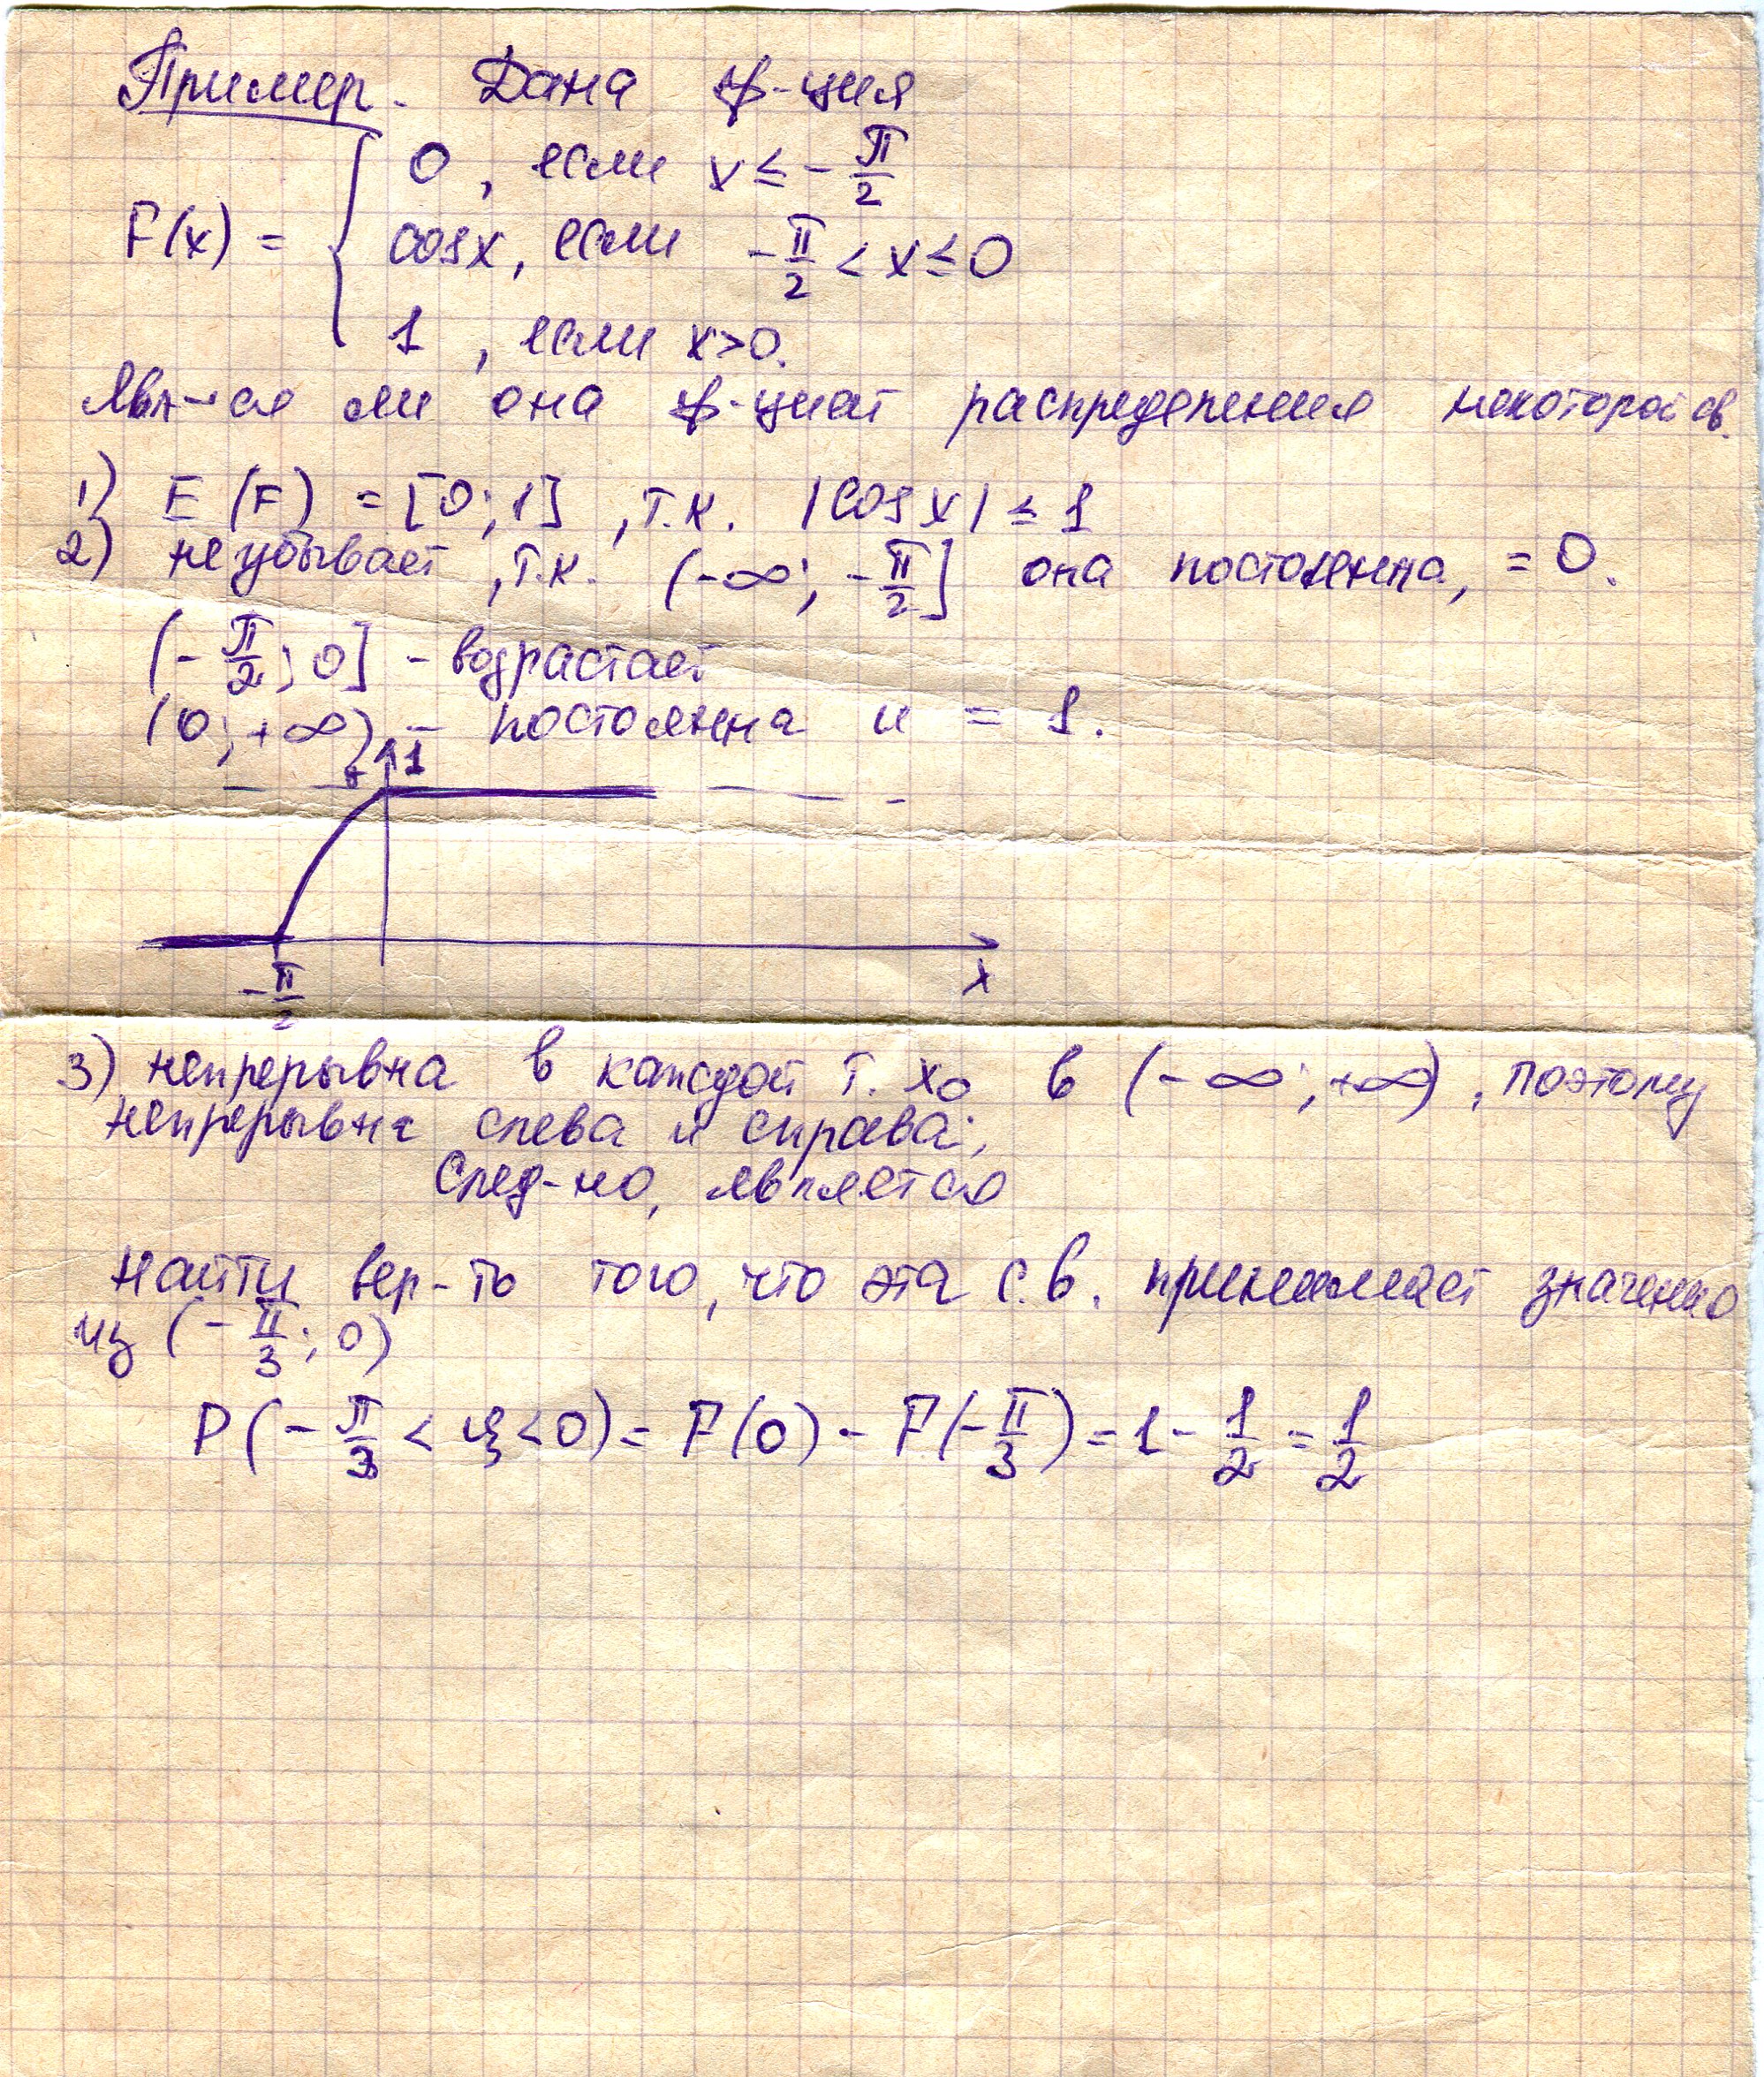 Пример. Дана ф-ция
F(x) = { 0, если x ≤ -π/2
cosx, если -π/2 < x ≤ 0
1, если x>0.
Явл-ся ли она ф-цией распределения некоторой св.
1) E(F) = [0; 1], т.к. |cos x| ≤ 1
2) неубывает, т.к. (-∞; -π/2] она постоянна, = 0.
(-π/2; 0] - возрастает
(0; +∞) - постоянна и = 1.
1
-π/2
x
3) непрерывна в каждой т. x₀ в (-∞; +∞), поэтому
непрерывна слева и справа;
След-но, является
Найти вер-ть того, что эта с.в. принимает значению
из (-π/3; 0)
P(-π/3 < ξ < 0) = F(0) - F(-π/3) = 1 - 1/2 = 1/2